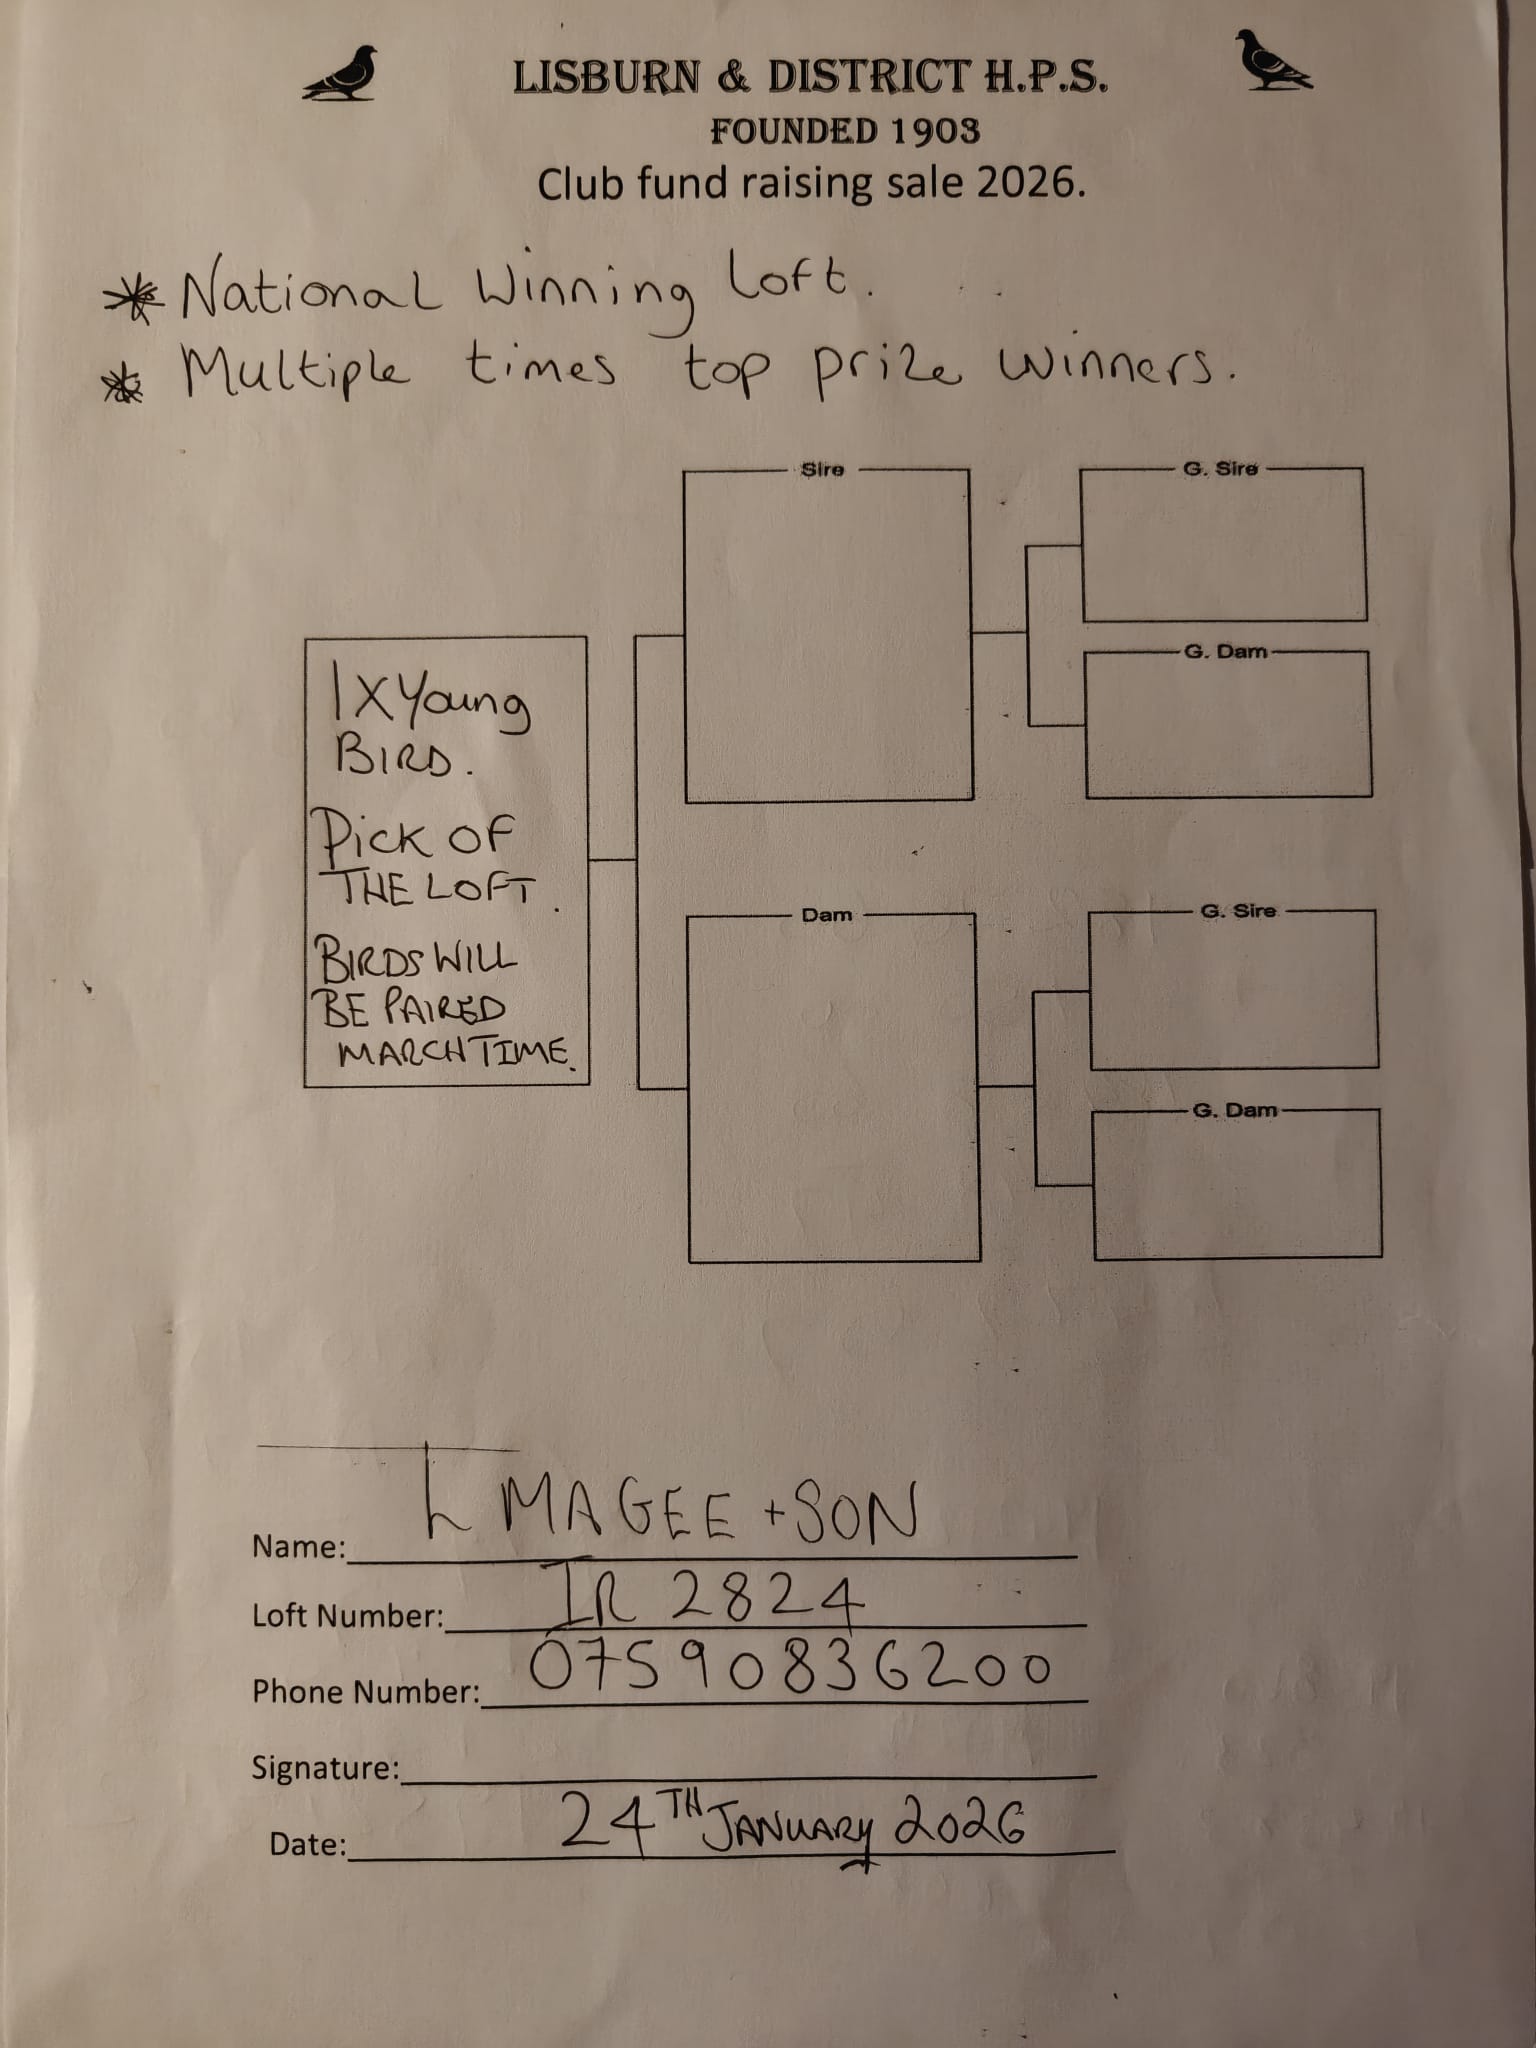 LISBURN & DISTRICT H.P.S.
FOUNDED 1903
Club fund raising sale 2026.
* National Winning Loft.
* Multiple times top prize winners.
Sire
G. Sire
G. Dam
1 X Young
BIRD.
Pick OF
THE LOFT.
BIRDS WILL
BE PAIRED
MARCH TIME.
Dam
G. Sire
G. Dam
Name: L MAGEE + SON
Loft Number: IR 2824
Phone Number: 07590836200
Signature:
Date: 24TH JANUARY 2026